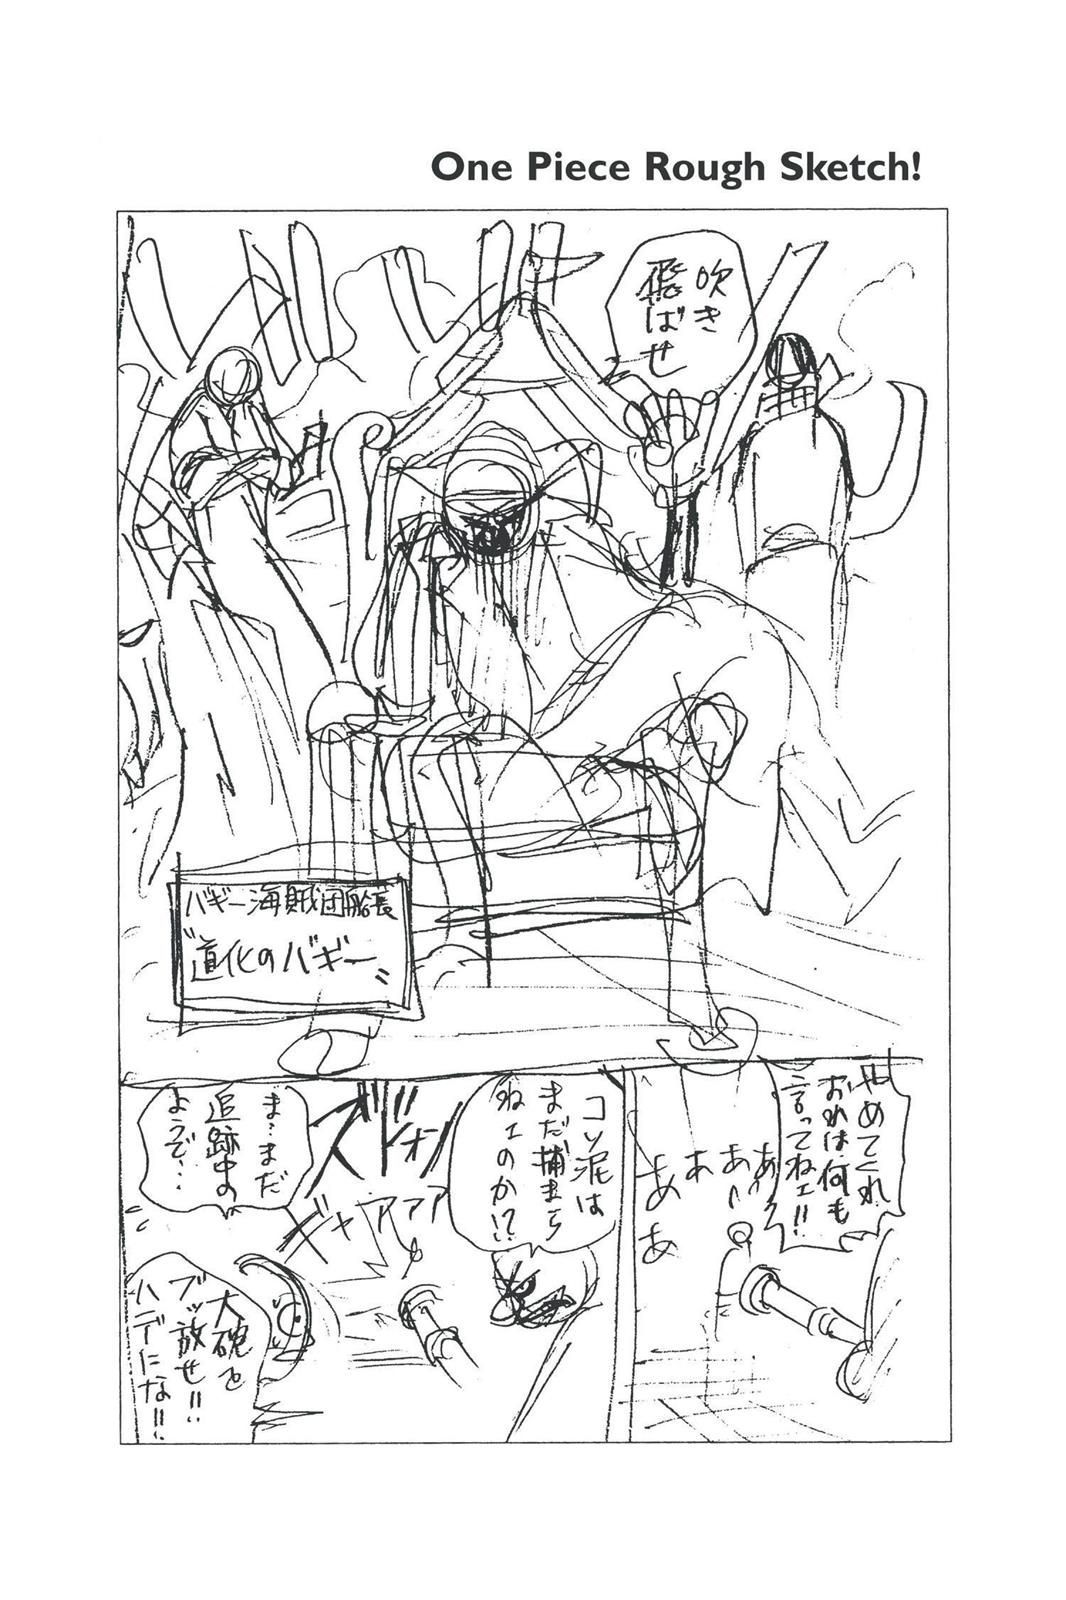 One Piece Rough Sketch!
吹き
飛ばせ
バギー海賊団船長
“道化のバギー”
やめてくれ
おれは何も
言ってねェ!!
あ
あ
あ
あ
あ
コソ泥は
まだ捕まら
ねェのか!?
ズドォン
ギャアアア
ま…まだ
追跡中の
ようで…
大砲を
ブッ放せ!!
ハデにな!!